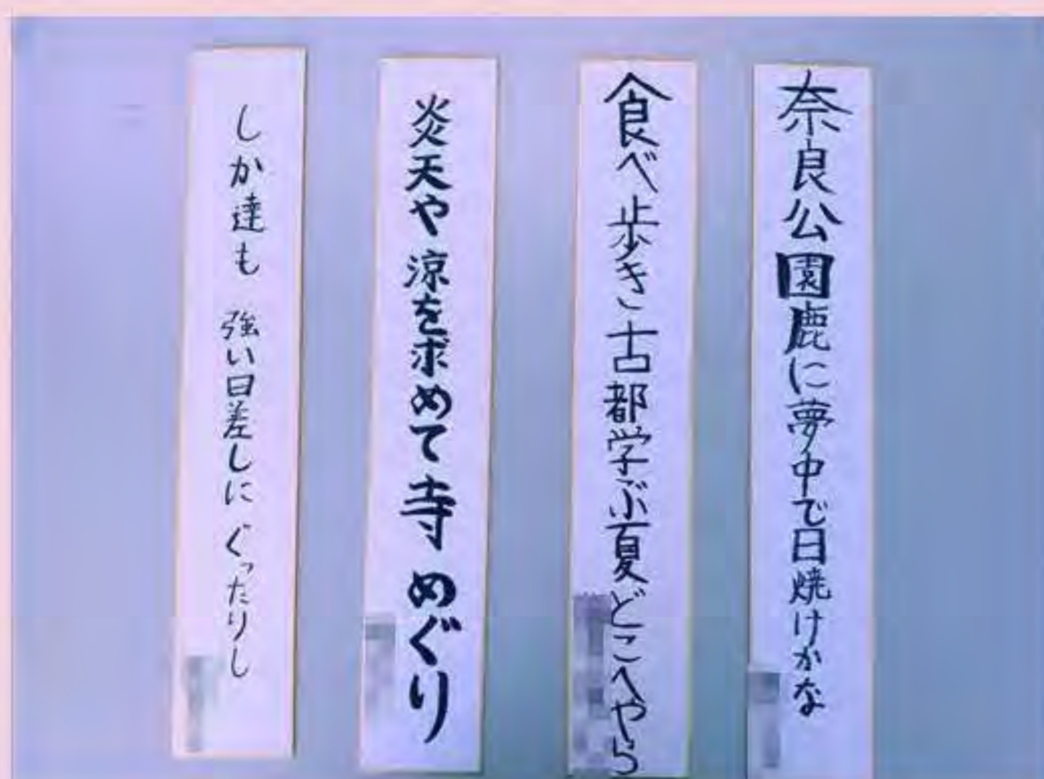 奈良公園鹿に夢中で日焼けかな
食べ歩き古都学ぶ夏どこへやら
炎天や涼を求めて寺めぐり
しか達も 強い日差しに ぐったりし